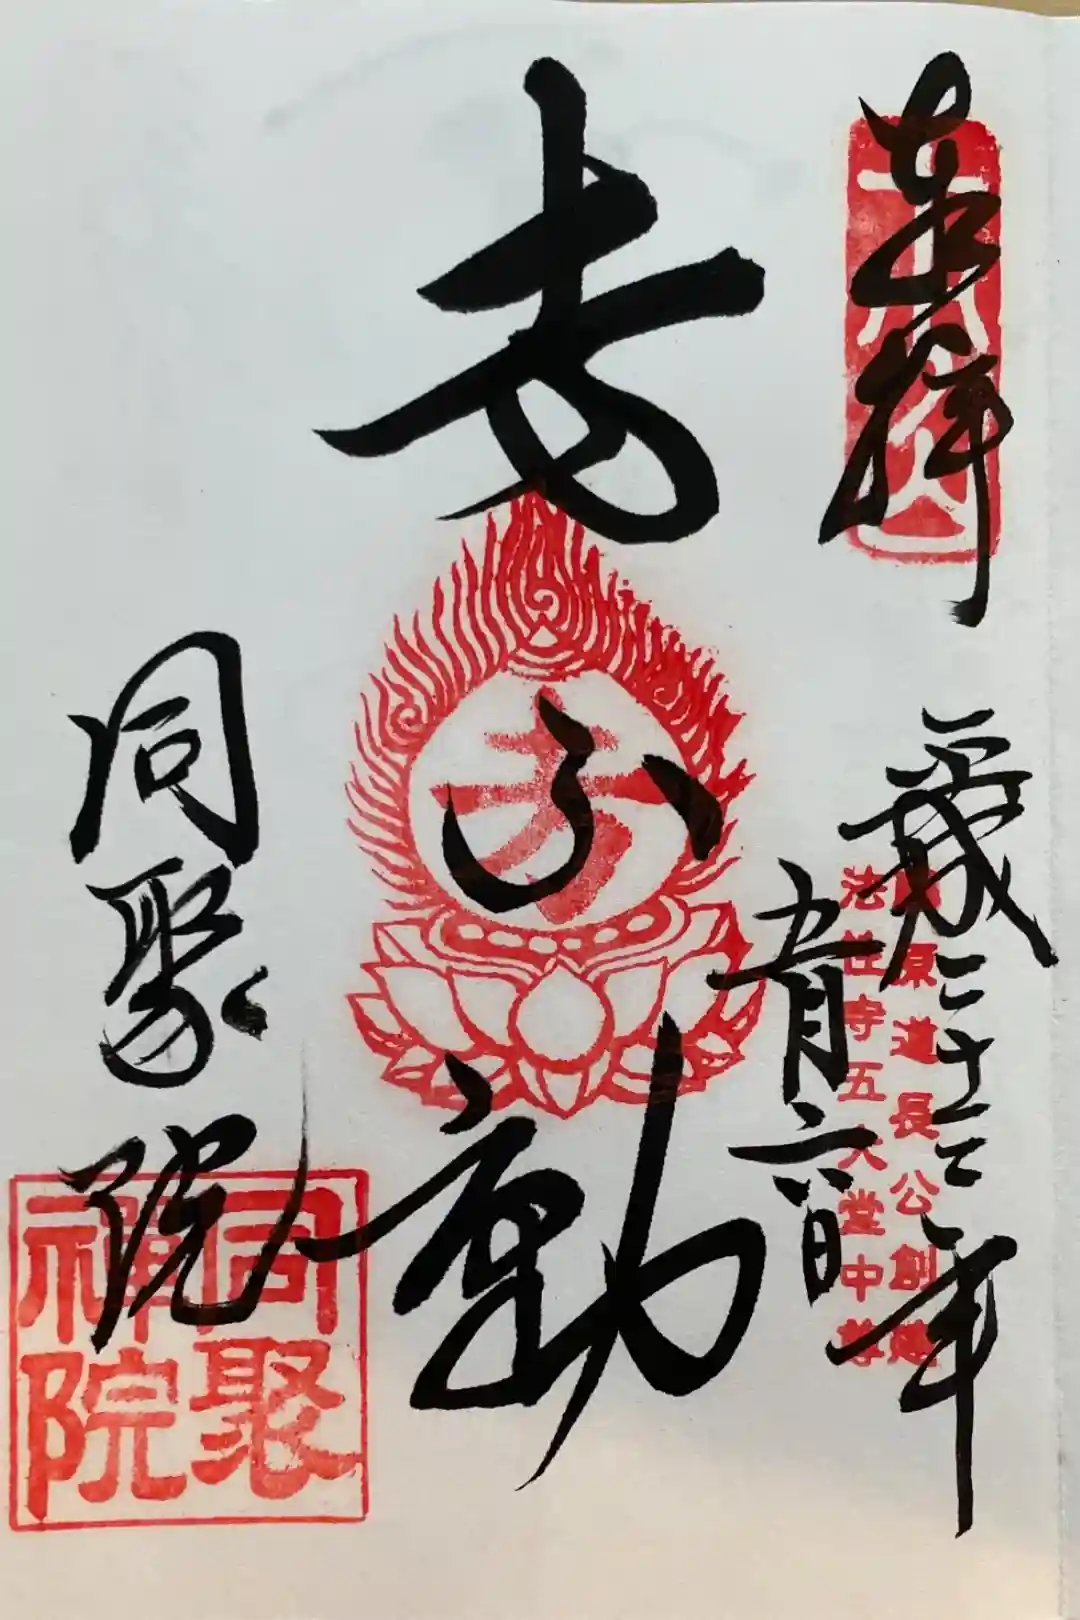 奉拝
平成二十三年
五月六日
藤原道長公創建
法性寺五大堂中尊
十万不動
同聚院
同聚
禅院